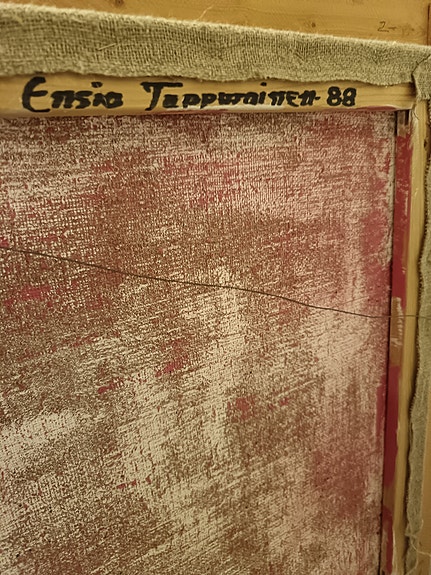 Ensio Tappurainen-88
2-